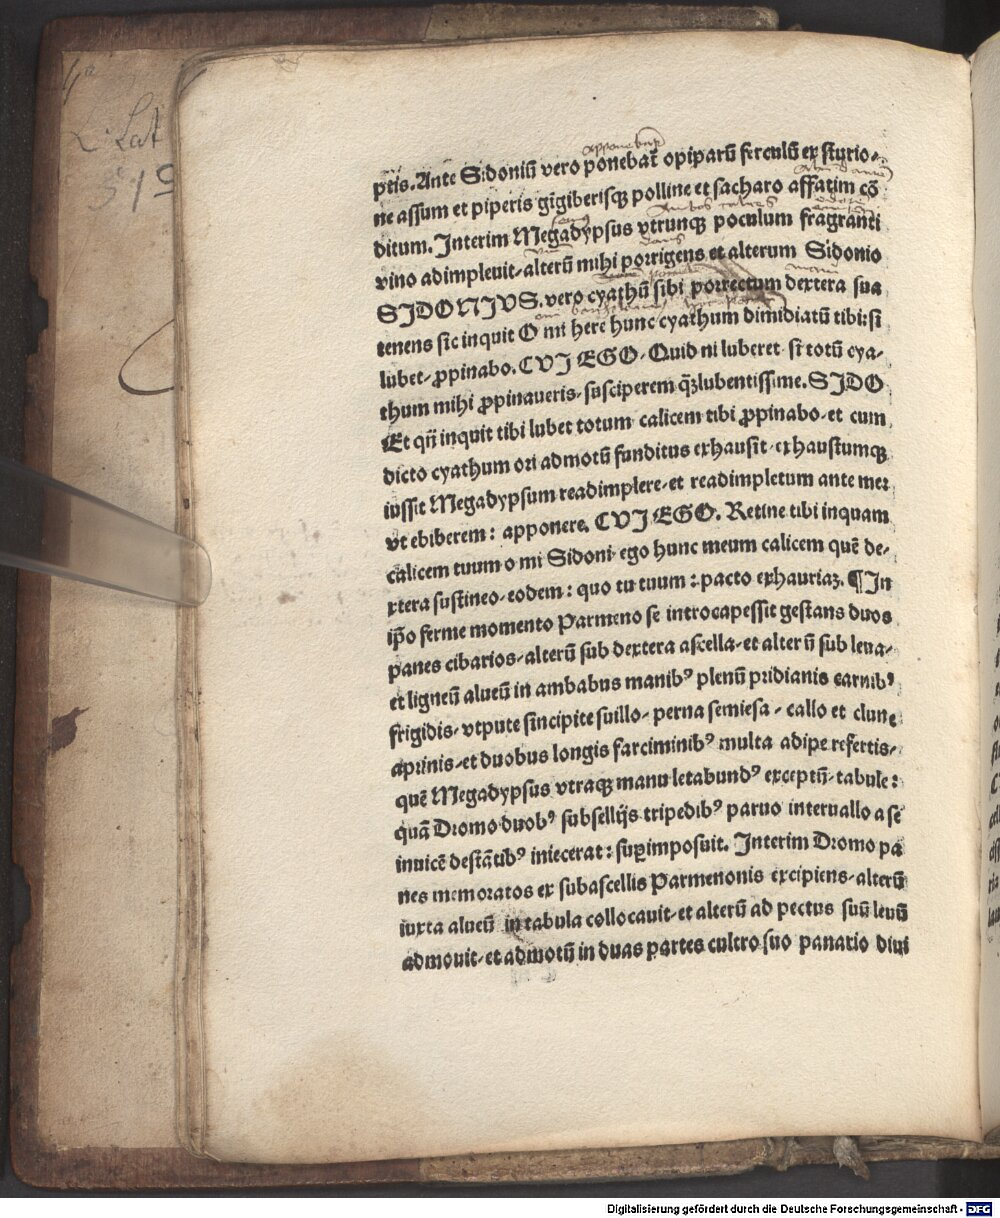 L. Lat
519
ptis. Ante Sidoniū vero ponebat̄ opiparū ferculū ex sturio-
ne assum et piperis gīgiberisqꝫ polline et sacharo affatim cō
ditum. Interim Megadypsus vtrunqꝫ poculum fragranti
vino adimpleuit-alterū mihi porrigens et alterum Sidonio
SIDONIVS. vero cyathū sibi porrectum dextera sua
tenens sic inquit O mi here hunc cyathum dimidiatū tibi: si
lubet-ꝓpinabo. CVI EGO. Quid ni luberet si totū cya-
thum mihi ꝓpinaueris-susciperem qꝫ̄lubentissime. SIDO
Et qn̄ inquit tibi lubet totum calicem tibi ꝓpinabo-et cum
dicto cyathum ori admotū funditus exhausit-exhaustumqꝫ
iussit Megadypsum readimplere-et readimpletum ante me:
vt ebiberem: apponere. CVI EGO. Retine tibi inquam
calicem tuum o mi Sidoni-ego hunc meum calicem quē de-
xtera sustineo-eodem: quo tu tuum: pacto exhauriaꝫ. ¶ In
ip̄o ferme momento Parmeno se introcapessit gestans duos
panes cibarios-alterū sub dextera ascella-et alterū sub leua-
et ligneū alueū in ambabus manibꝰ plenū pridianis carnibꝰ
frigidis-vtpute sincipite suillo-perna semiesa-callo et clune
aprinis-et duobus longis farciminibꝰ multa adipe refertis-
quē Megadypsus vtraqꝫ manu letabundꝰ exceptū-tabule:
quā Dromo duobꝰ subsellijs tripedibꝰ paruo interuallo a se
inuicē destātibꝰ iniecerat: suꝑimposuit. Interim Dromo pa
nes memoratos ex subascellis Parmenonis excipiens-alterū
iuxta alueū in tabula collocauit-et alterū ad pectus suū leuū
admouit-et admotū in duas partes cultro suo panario diui
Digitalisierung gefördert durch die Deutsche Forschungsgemeinschaft - DFG